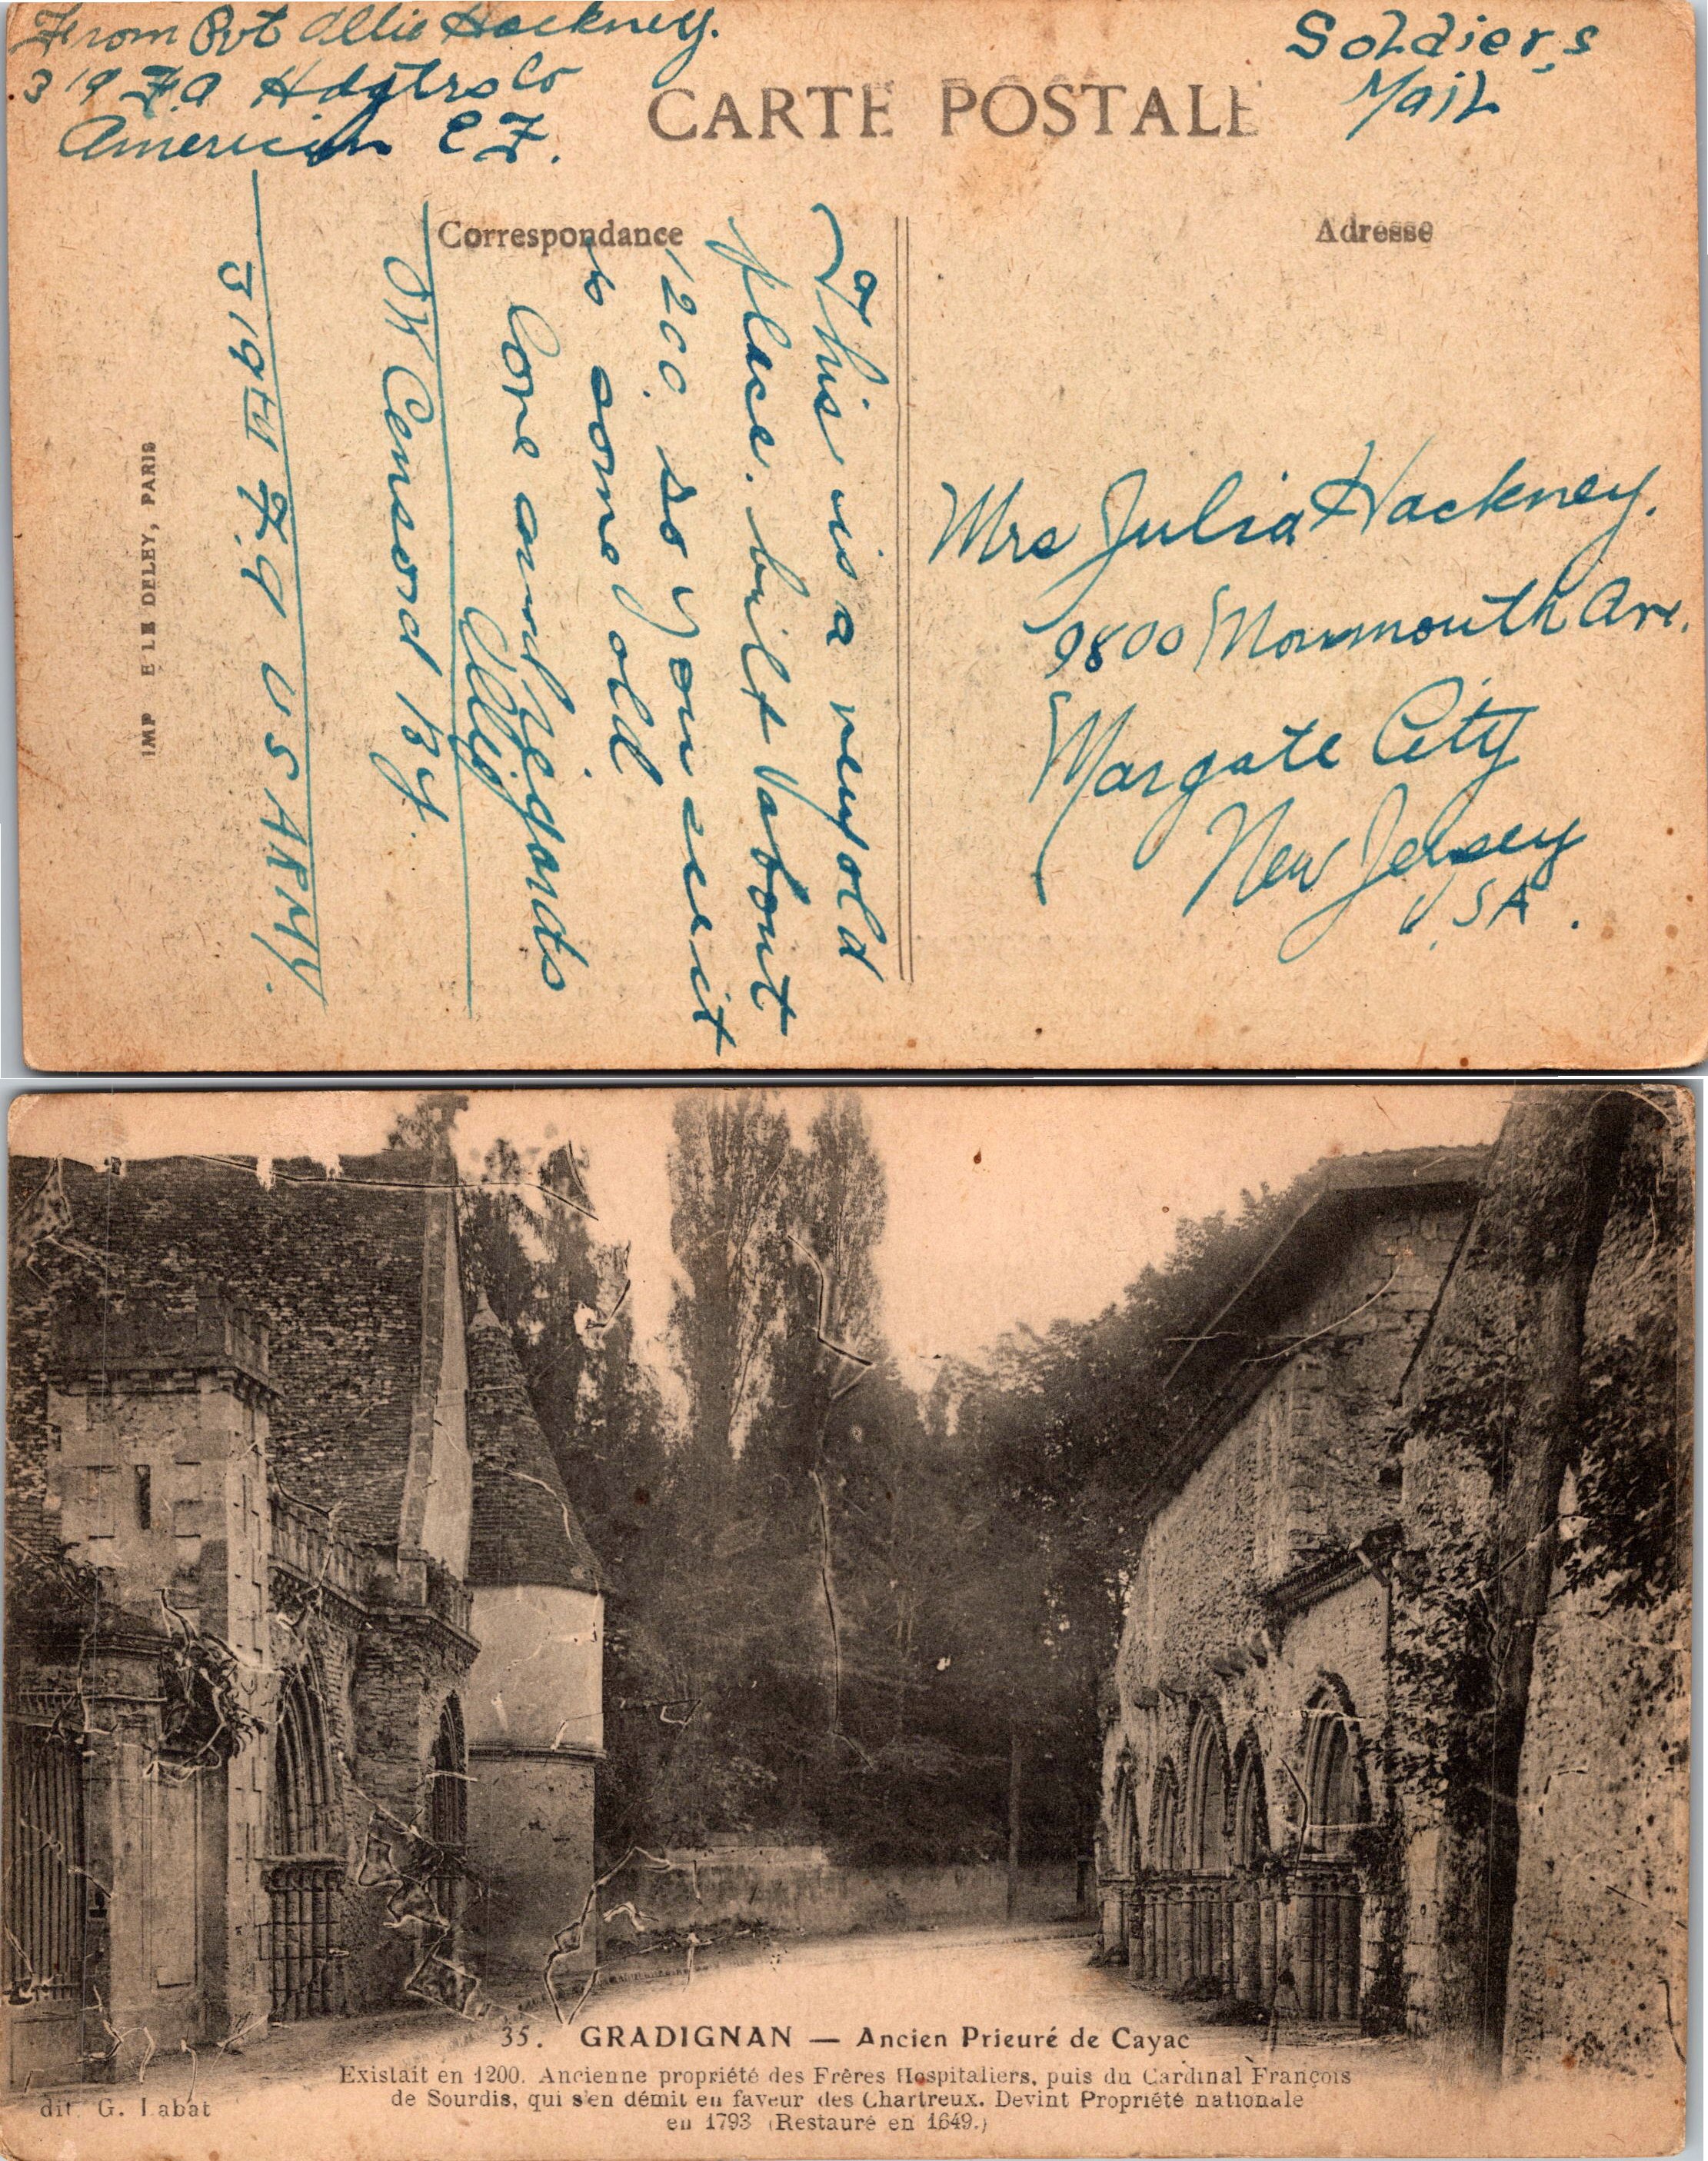 From Pvt Ollie Hackney.
319 F.A Hdqtrs Co
American E F.
Soldiers
Mail
CARTE POSTALE
Correspondance
Adresse
This is a very old
place. built about
1200. so you see it
is some old
Love and Regards
Ollie
OK Censord By.
319 F.A U S ARMY.
IMP E LE DELEY, PARIS
Mrs Julia Hackney.
9800 Monmouth Ave.
Margate City
New Jersey
U.S.A.
35. GRADIGNAN — Ancien Prieuré de Cayac
Existait en 1200. Ancienne propriété des Frères Hospitaliers, puis du Cardinal François
de Sourdis, qui s'en démit en faveur des Chartreux. Devint Propriété nationale
en 1793 (Restauré en 1649.)
dit G. Labat